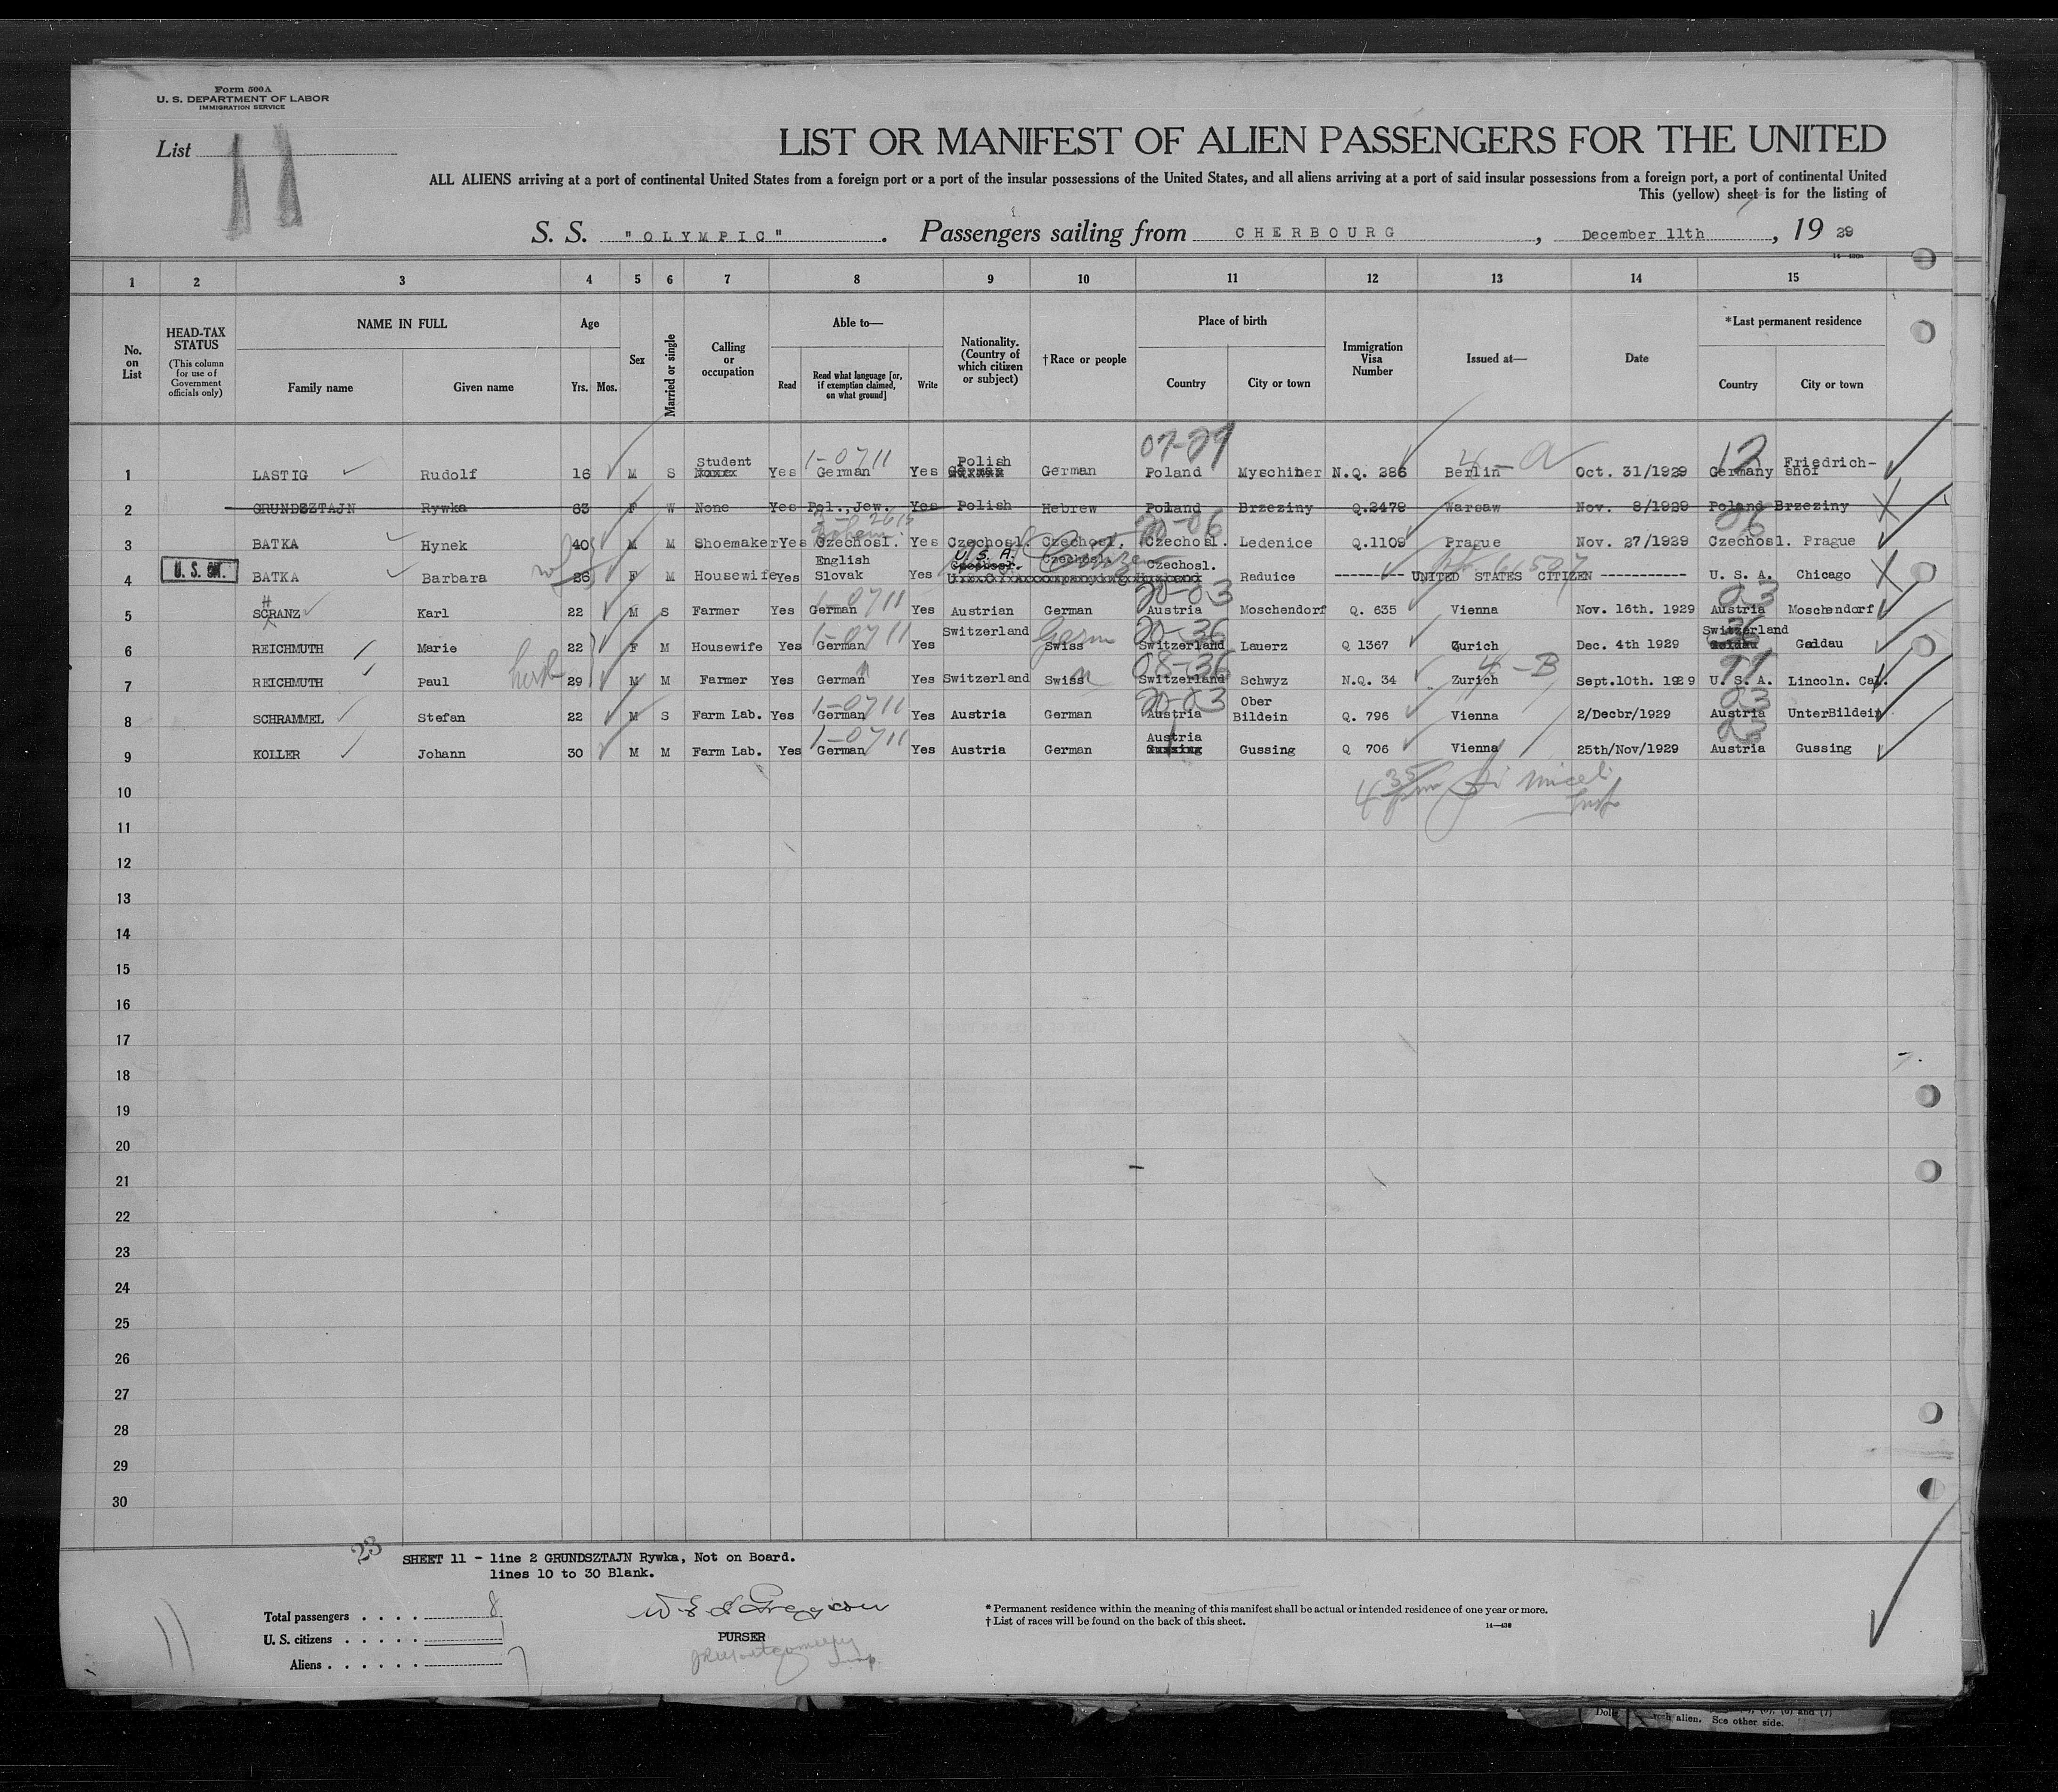 Form 500A
U. S. DEPARTMENT OF LABOR
IMMIGRATION SERVICE
List 11
LIST OR MANIFEST OF ALIEN PASSENGERS FOR THE UNITED
ALL ALIENS arriving at a port of continental United States from a foreign port or a port of the insular possessions of the United States, and all aliens arriving at a port of said insular possessions from a foreign port, a port of continental United
This (yellow) sheet is for the listing of
S. S. "OLYMPIC". Passengers sailing from CHERBOURG, December 11th, 19 29
14—430a
1 2 3 4 5 6 7 8 9 10 11 12 13 14 15
No. on List
HEAD-TAX STATUS (This column for use of Government officials only)
NAME IN FULL Family name Given name
Age Yrs. Mos.
Sex
Married or single
Calling or occupation
Able to— Read Read what language [or, if exemption claimed, on what ground] Write
Nationality. (Country of which citizen or subject)
†Race or people
Place of birth Country City or town
Immigration Visa Number
Issued at—
Date
*Last permanent residence Country City or town
07-29 12
1-0711 4-a
1 LASTIG Rudolf 16 M S Student Yes German Yes Polish German German Poland Myschiner N.Q. 286 Berlin Oct. 31/1929 Germany Friedrich-shof
2 GRUNDSZTAJN Rywka 63 F W None Yes Pol.,Jew. Yes Polish Hebrew Poland Brzeziny Q.2479 Warsaw Nov. 8/1929 Poland Brzeziny
20-06 26
3 BATKA Hynek 40 M M Shoemaker Yes Czechosl. Yes Czechosl. Czechosl. Czechosl. Ledenice Q.1109 Prague Nov. 27/1929 Czechosl. Prague
4 U. S. CIT. BATKA Barbara 26 F M Housewife Yes English Slovak Yes U. S. A. Czechosl. Czechosl. Czechosl. Raduice UNITED STATES CITIZEN U. S. A. Chicago
1-0711 20-03 03
5 SCRANZ H Karl 22 M S Farmer Yes German Yes Austrian German Austria Moschendorf Q. 635 Vienna Nov. 16th. 1929 Austria Moschendorf
1-0711 Germ 20-36 36
6 REICHMUTH Marie 22 F M Housewife Yes German Yes Switzerland Swiss Switzerland Lauerz Q 1367 Zurich Dec. 4th 1929 Switzerland Goldau
husb 08-36 4-B 99
7 REICHMUTH Paul 29 M M Farmer Yes German Yes Switzerland Swiss Switzerland Schwyz N.Q. 34 Zurich Sept.10th. 1929 U. S. A. Lincoln. Cal.
1-0711 20-03 03
8 SCHRAMMEL Stefan 22 M S Farm Lab. Yes German Yes Austria German Austria Ober Bildein Q. 796 Vienna 2/Decbr/1929 Austria UnterBildein
1-0711 03
9 KOLLER Johann 30 M M Farm Lab. Yes German Yes Austria German Austria Gussing Gussing Q 706 Vienna 25th/Nov/1929 Austria Gussing
4 35 pm Insp
10
11
12
13
14
15
16
17
18
19
20
21
22
23
24
25
26
27
28
29
30
23
SHEET 11 - line 2 GRUNDSZTAJN Rywka, Not on Board.
lines 10 to 30 Blank.
11
Total passengers . . . . 8
U. S. citizens . . . . . 1
Aliens . . . . . . 7
PURSER
* Permanent residence within the meaning of this manifest shall be actual or intended residence of one year or more.
† List of races will be found on the back of this sheet.
14—430
alien. See other side.